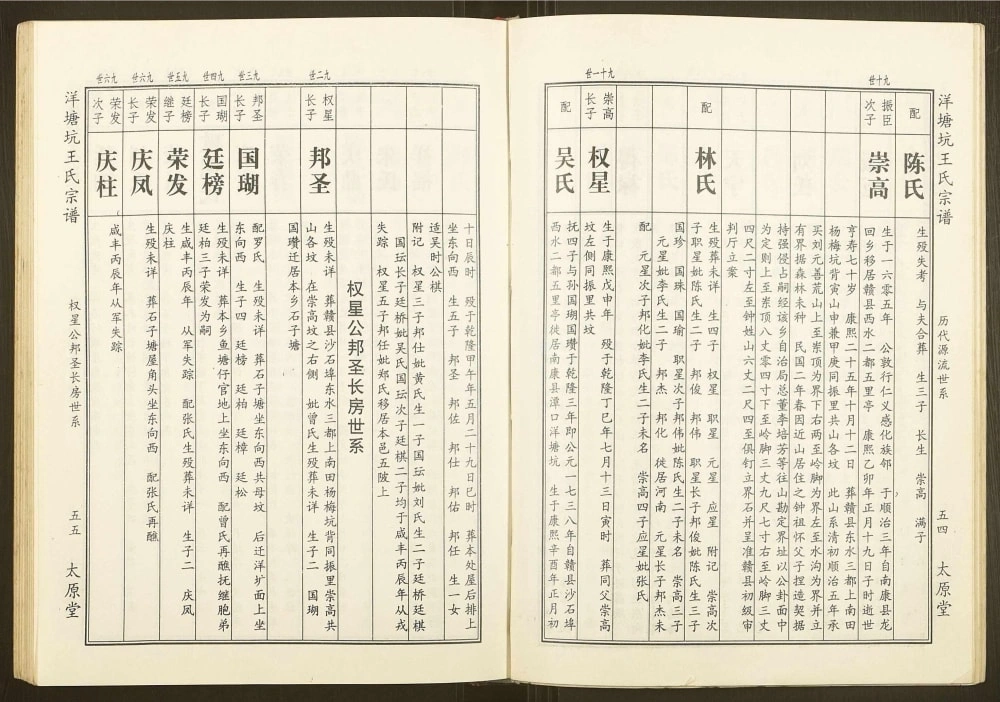 洋塘坑王氏宗谱
历代源流世系
五四
太原堂
配
陈氏
生殁失考 与夫合葬 生三子 长生 崇高 满子
九十世
振臣次子
崇高
生于一六五零年 公敦行仁义感化族邻 于顺治三年自南康县龙
回乡移居赣县西水二都五里亭 康熙乙卯年正月十九日子时逝世
亨寿七十岁 康熙二十五年十月十二日 葬赣县东水三都上南田
杨梅坑背寅山申兼甲庚同振里共山各坟 此山系清初顺治五年承
买刘元善荒山上至崇顶为界下右两至岭脚为界左至水沟为界并立
有界据森林未种 民国二年春因近山居住之钟祖怀父子捏造契据
持强侵占嗣经该乡自治局总董李培芳等往山勘定界址以公卦面中
为定则上至崇顶八丈零四寸下至岭脚三丈九尺七寸右至岭脚三丈
四尺二寸左至钟姓山六丈二尺四至俱钉立界石并呈准赣县初级审
判厅立案
配
林氏
生殁葬未详 生四子 权星 职星 元星 应星 附记 崇高次
子职星妣陈氏生二子 邦俊 邦伟 职星长子邦俊妣陈氏生三子
国珍 国珠 国瑜 职星次子邦伟妣陈氏生二子未名 崇高三子
元星妣李氏生二子 邦杰 邦化 徙居河南 元星长子邦杰未
配 元星次子邦化妣李氏生二子未名 崇高四子应星妣张氏
九十一世
崇高长子
权星
生于康熙戊申年 殁于乾隆丁巳年七月十三日寅时 葬同父崇高
坟左侧同振里共坟
配
吴氏
抚四子与孙国瑚国瓒于乾隆三年即公元一七三八年自赣县沙石埠
西水二都五里亭徙居南康县潭口洋塘坑 生于康熙辛酉年正月初
十日辰时 殁于乾隆甲午年五月二十九日巳时 葬本处屋后排上
坐东向西 生五子 邦圣 邦佐 邦仕 邦佑 邦任 生一女
适吴时公棋
附记 权星三子邦仕妣黄氏生一子国玹妣刘氏生二子廷桥廷棋
国玹长子廷桥妣吴氏国玹次子廷棋二子均于咸丰丙辰年从戎
失踪 权星五子邦任妣郑氏移居本邑五陂上
权星公邦圣长房世系
九二世
权星长子
邦圣
生殁未详 葬赣县沙石埠东水三都上南田杨梅坑背同振里崇高共
山各坟 在崇高坟之右侧 妣曾氏生殁葬未详 生子二 国瑚
国瓒迁居本乡石子塘
九三世
邦圣长子
国瑚
配罗氏 生殁未详 葬石子塘坐东向西共母坟 后迁洋圹面上坐
东向西 生子四 廷榜 廷柏 廷樟 廷松
九四世
国瑚长子
廷榜
生殁未详 葬本乡鱼塘仔官地上坐东向西 配曾氏再醮抚继胞弟
廷柏三子荣发为嗣
九五世
廷榜继子
荣发
生咸丰丙辰年 从军失踪 配张氏生殁葬未详 生子二 庆凤
庆柱
九六世
荣发长子
庆凤
生殁未详 葬石子塘屋角头坐东向西 配张氏再醮
九六世
荣发次子
庆柱
咸丰丙辰年从军失踪
洋塘坑王氏宗谱
权星公邦圣长房世系
五五
太原堂